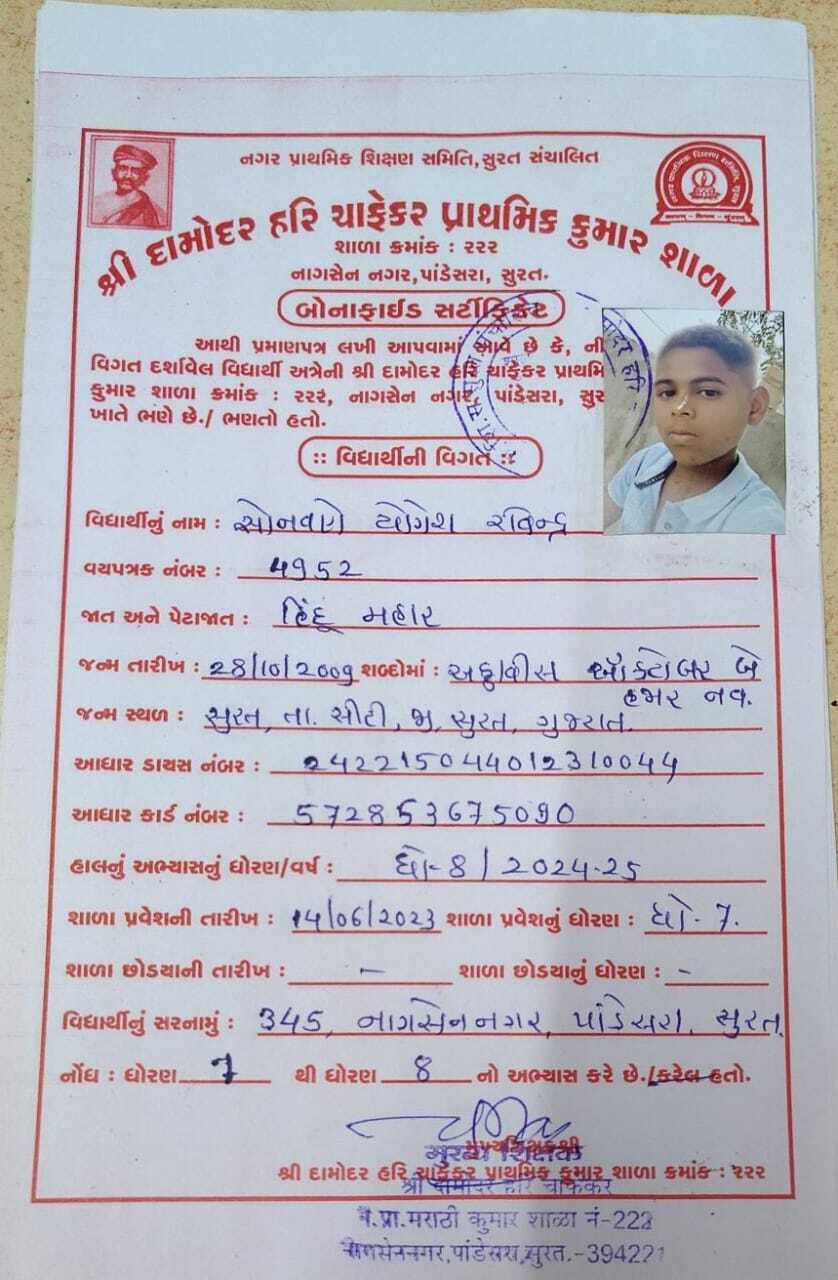 નગર પ્રાથમિક શિક્ષણ સમિતિ, સુરત સંચાલિત
શ્રી દામોદર હરિ ચાફેકર પ્રાથમિક કુમાર શાળા
શાળા ક્રમાંક : ૨૨૨
નાગસેન નગર, પાંડેસરા, સુરત.
બોનાફાઈડ સર્ટીફિકેટ
આથી પ્રમાણપત્ર લખી આપવામાં આવે છે કે, ની
વિગત દર્શાવેલ વિદ્યાર્થી અત્રેની શ્રી દામોદર હરિ ચાર્ફેકર પ્રાથમિ
કુમાર શાળા ક્રમાંક : ૨૨૨, નાગસેન નગર, પાંડેસરા, સુર
ખાતે ભણે છે./ ભણતો હતો.
:: વિદ્યાર્થીની વિગત ::
વિદ્યાર્થીનું નામ : સોનવાણે યોગેશ રવિન્દ્ર
વયપત્રક નંબર : 4952
જાત અને પેટાજાત : હિંદૂ મહાર
જન્મ તારીખ : 28/10/2009 શબ્દોમાં : અઠ્ઠાવીસ ઓક્ટોબર બે
હજાર નવ.
જન્મ સ્થળ : સુરત, તા. સીટી, જી, સુરત, ગુજરાત.
આધાર ડાયસ નંબર : 242215044012310044
આધાર કાર્ડ નંબર : 572853675090
હાલનું અભ્યાસનું ધોરણ/વર્ષ : ધો-8 / 2024-25
શાળા પ્રવેશની તારીખ : 14/06/2023 શાળા પ્રવેશનું ધોરણ : ધો- 7.
શાળા છોડયાની તારીખ : - શાળા છોડયાનું ધોરણ : -
વિદ્યાર્થીનું સરનામું : 345, નાગસેનનગર, પાંડેસરા, સુરત.
નોંધ : ધોરણ 7 થી ધોરણ 8 નો અભ્યાસ કરે છે./કરેલ હતો.
મુખ્ય શિક્ષક
શ્રી દામોદર હરિ ચાર્ફેકર પ્રાથમિક કુમાર શાળા ક્રમાંક : ૨૨૨
श्री दामोदर हरि चाफेकर
न.प्रा.मराठी कुमार शाळा नं-222
नागसेननगर,पांडेसरा,सुरत.-394221